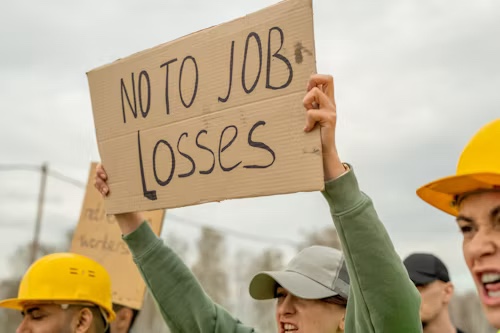 NO TO JOB
LOSSES
workers